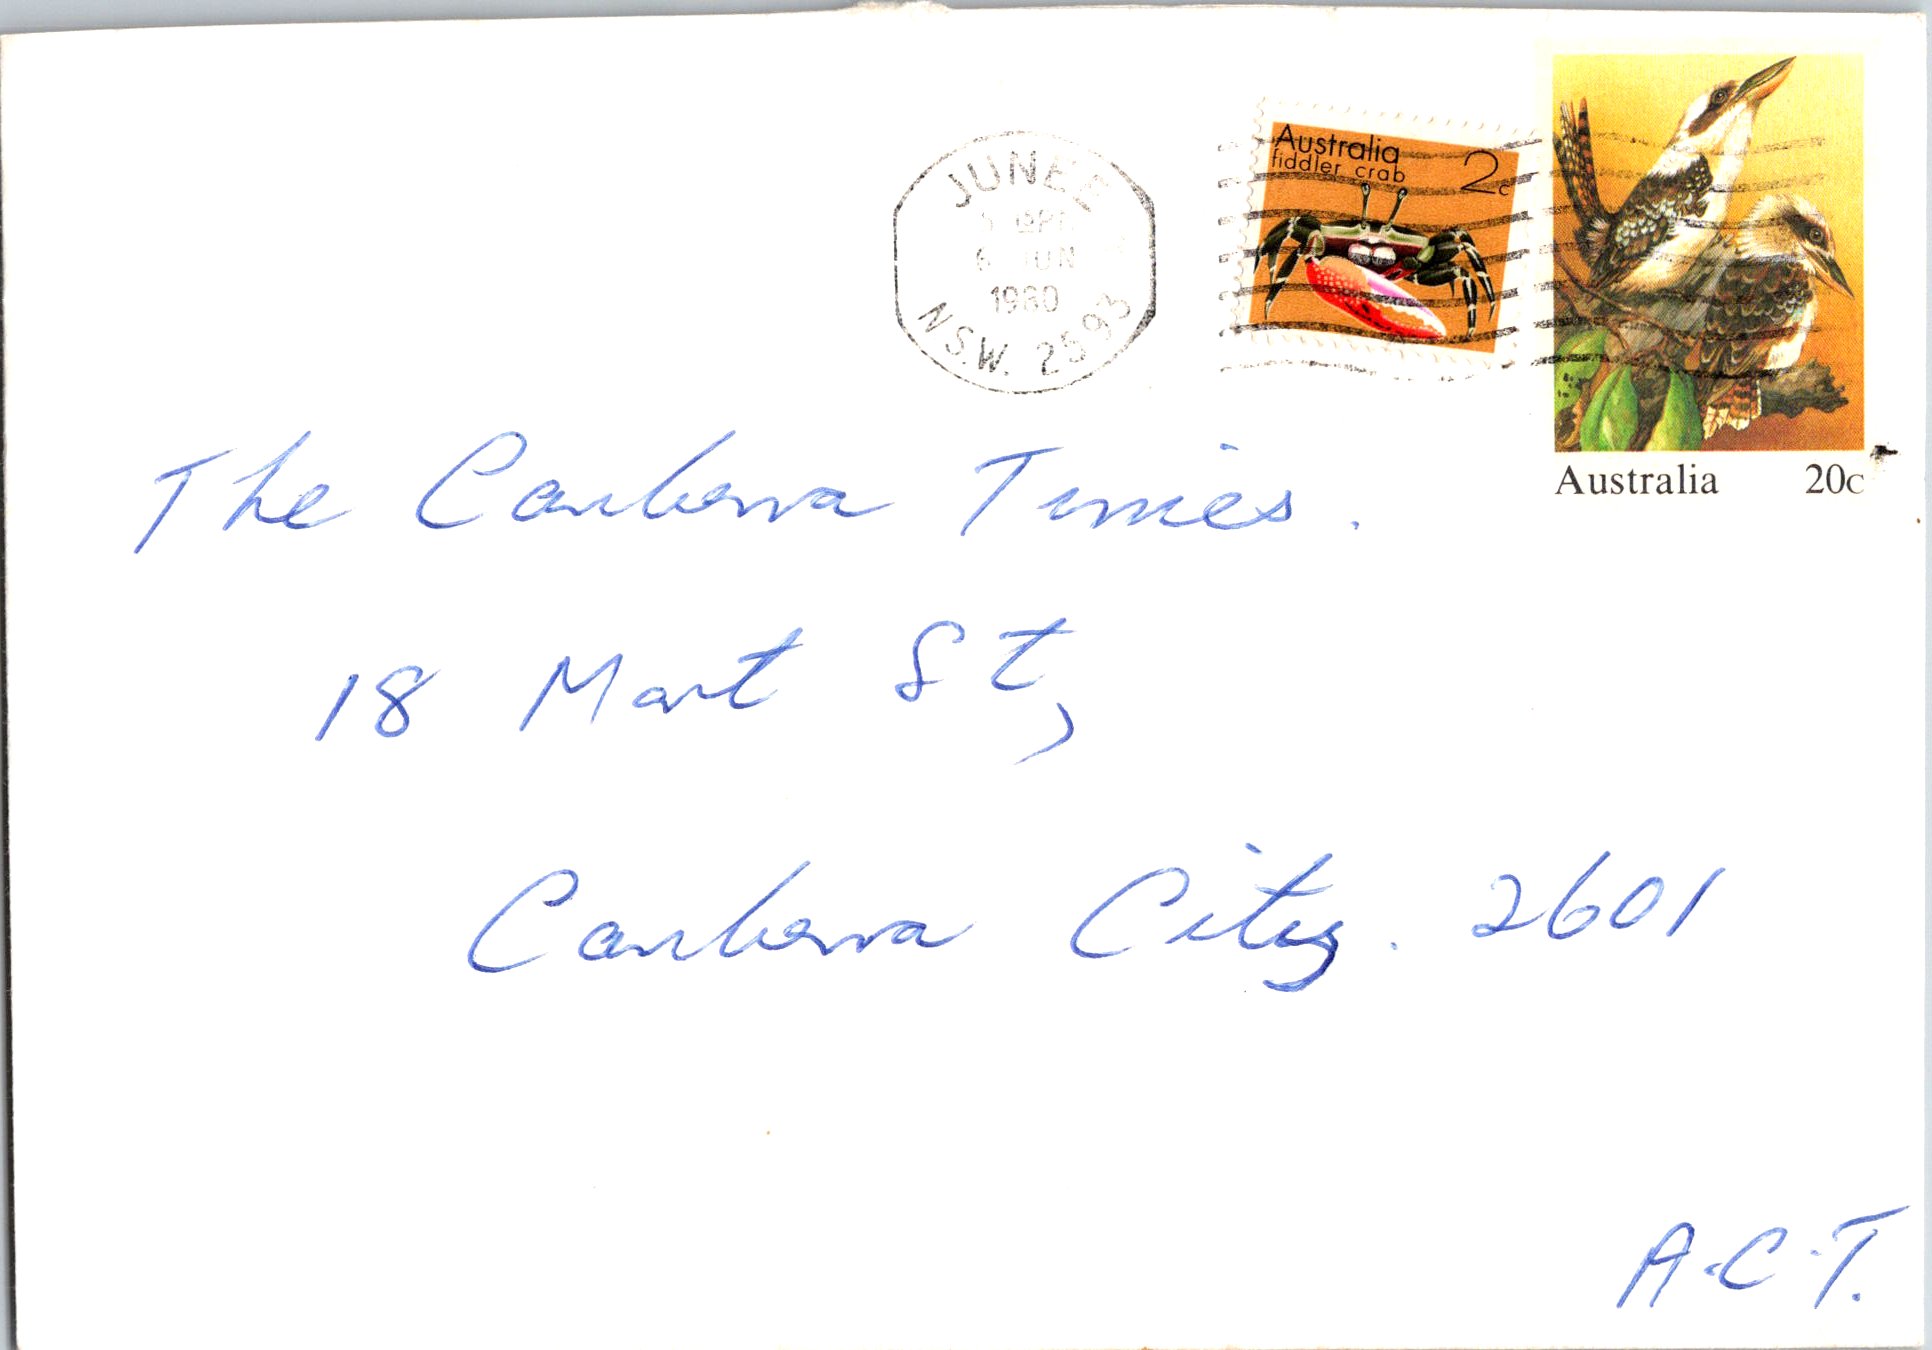 JUNEE
6 JUN
1980
N.S.W. 2593
Australia
fiddler crab
2c
Australia 20c
The Canberra Times.
18 Mort St,
Canberra City. 2601
A.C.T.